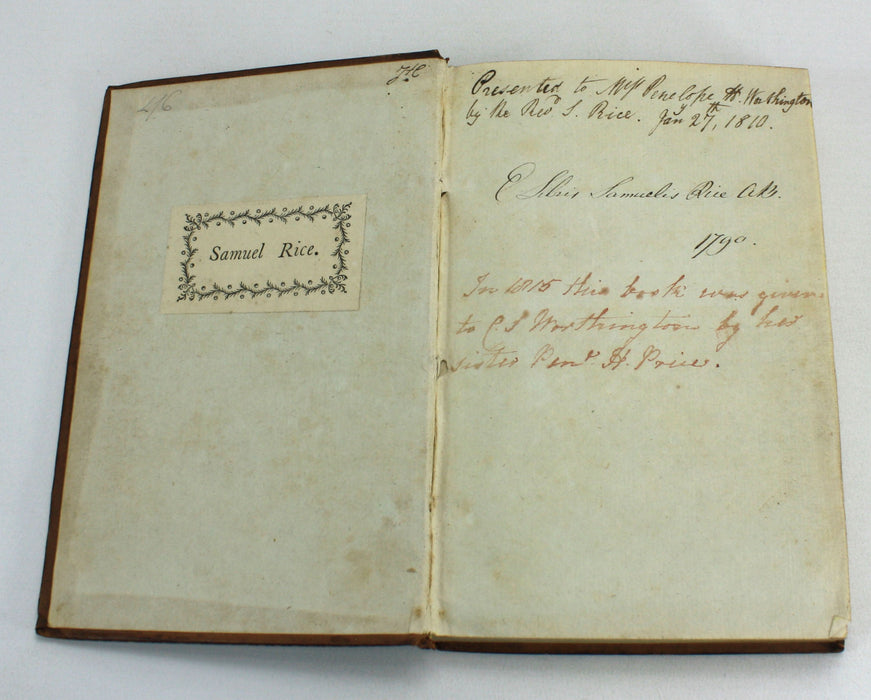 4/6
Samuel Rice.
Presented to Miss Penelope H. Worthington
by the Revd. S. Rice. Jany 27th, 1810.
E Libris Samuelis Rice AB.
1790.
In 1815 this book was given
to C S Worthington by her
sister Penr. H. Price.